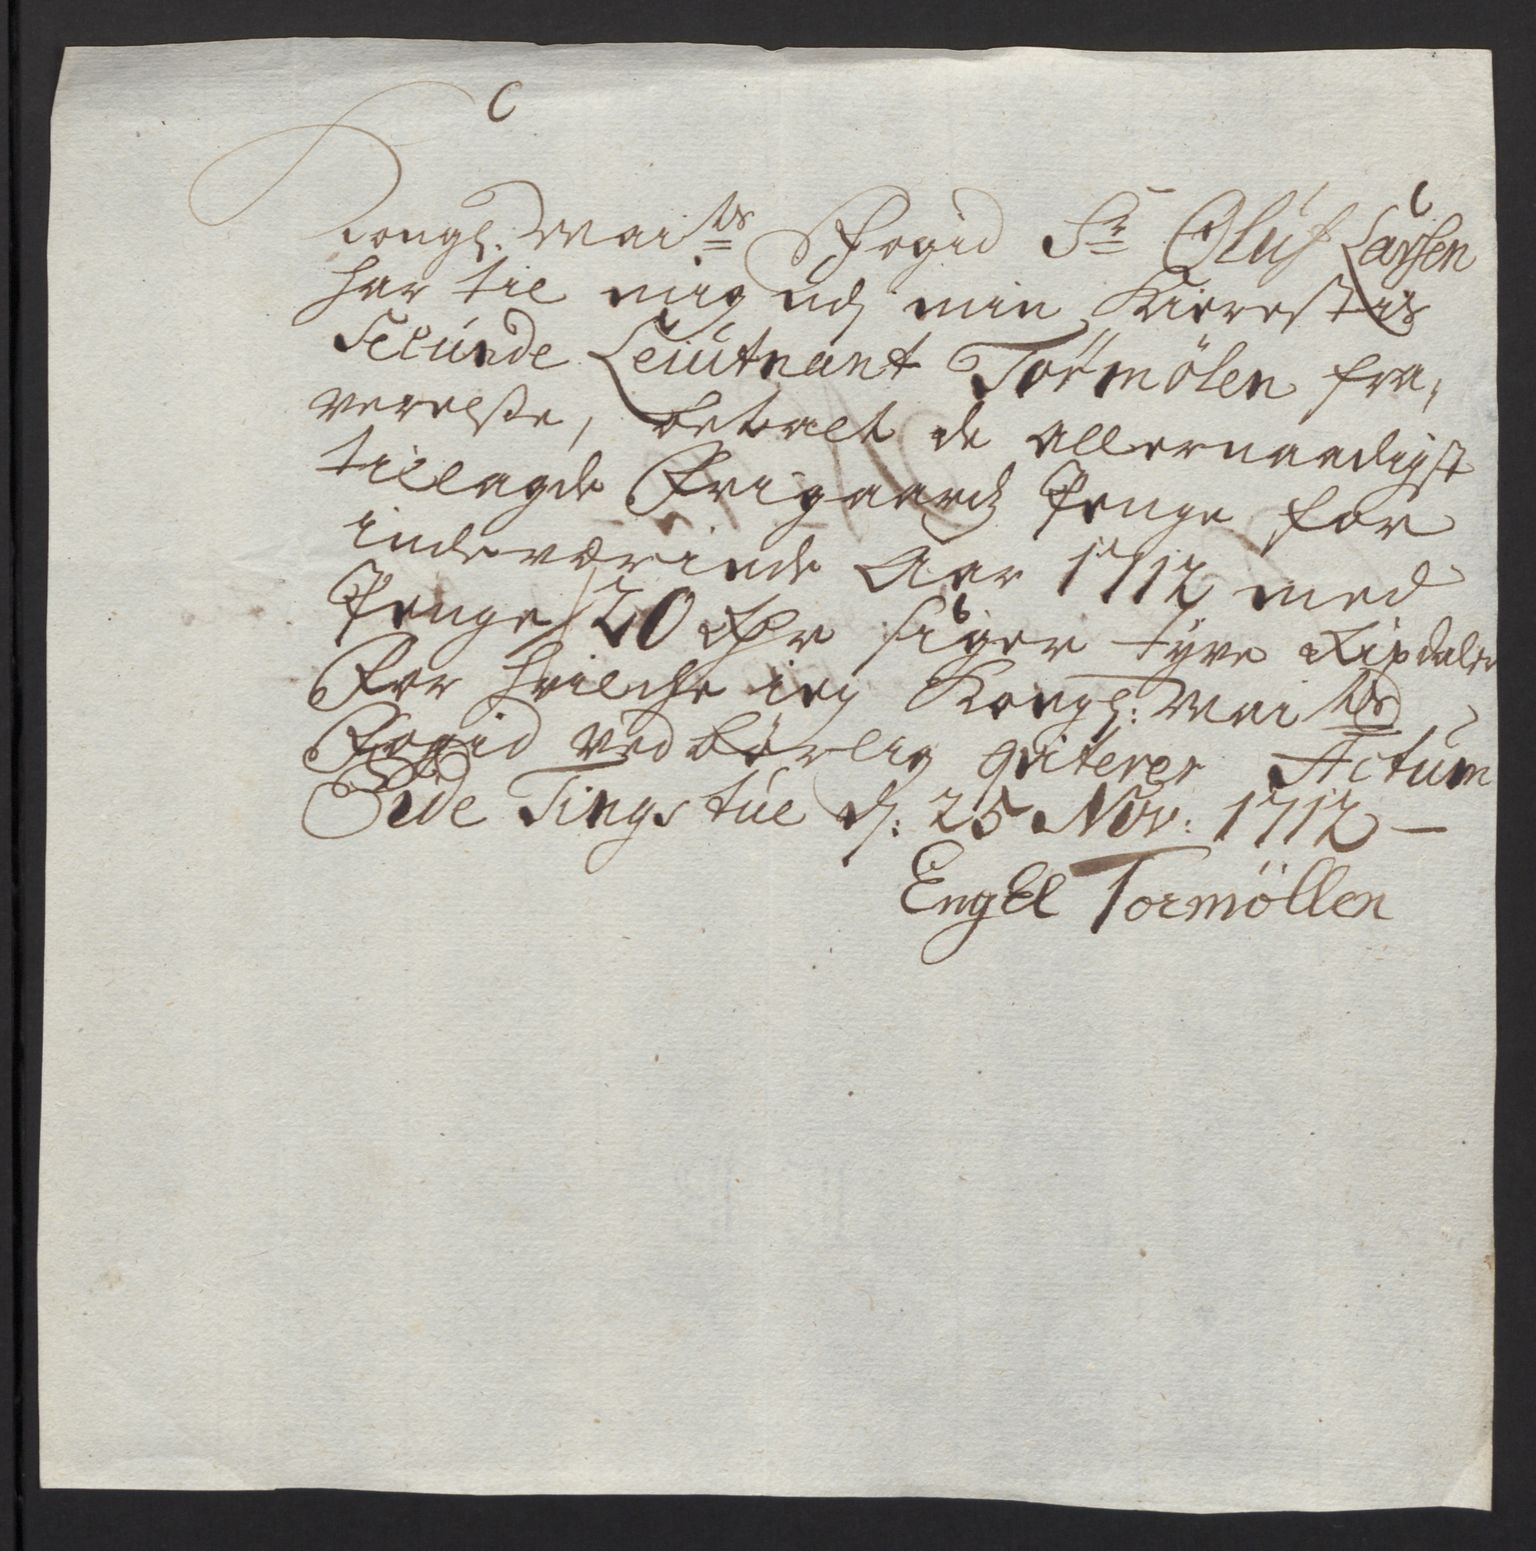 C
Kongl. Mai:ts Fogid Sr Oluf Larsen
har til mig udj min Kierestis
Secunde Leiutnant Tormölen fra,
verelsse, betalt de allernaadigst
tillagde Frigaards Penge for
indeværinde Aar 1712 med
Penge 20 Rdr siger tyve Rixdaler
For hvilche ieg Kongl: Mai:ts
Fogid vedbörlig qviterer Actum
Eide Tingstue d: 25 Nov: 1712 –
Engel Tormöllen